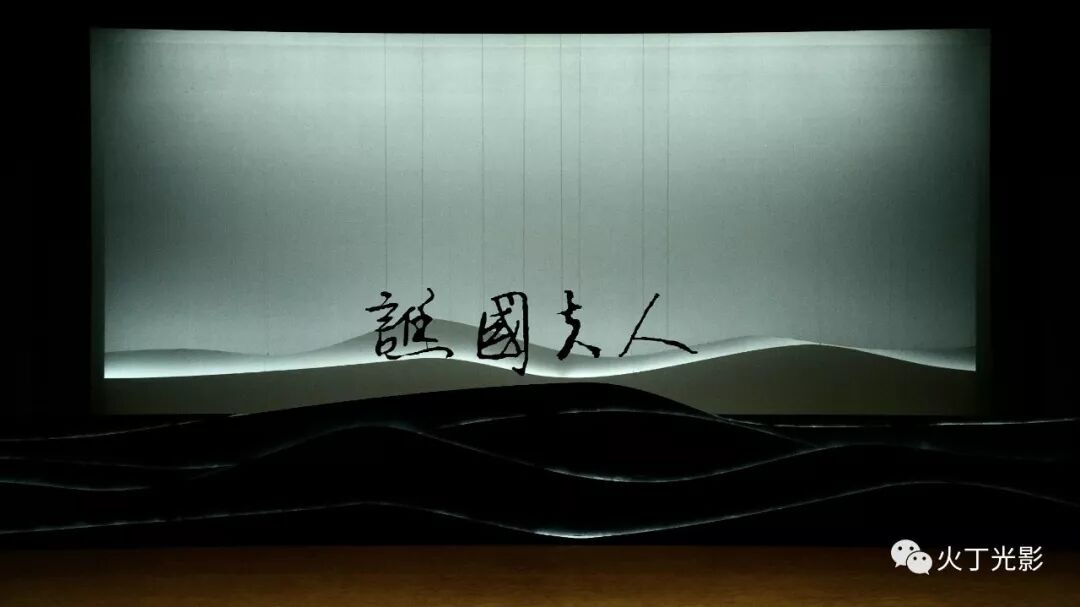 譙國夫人
火丁光影